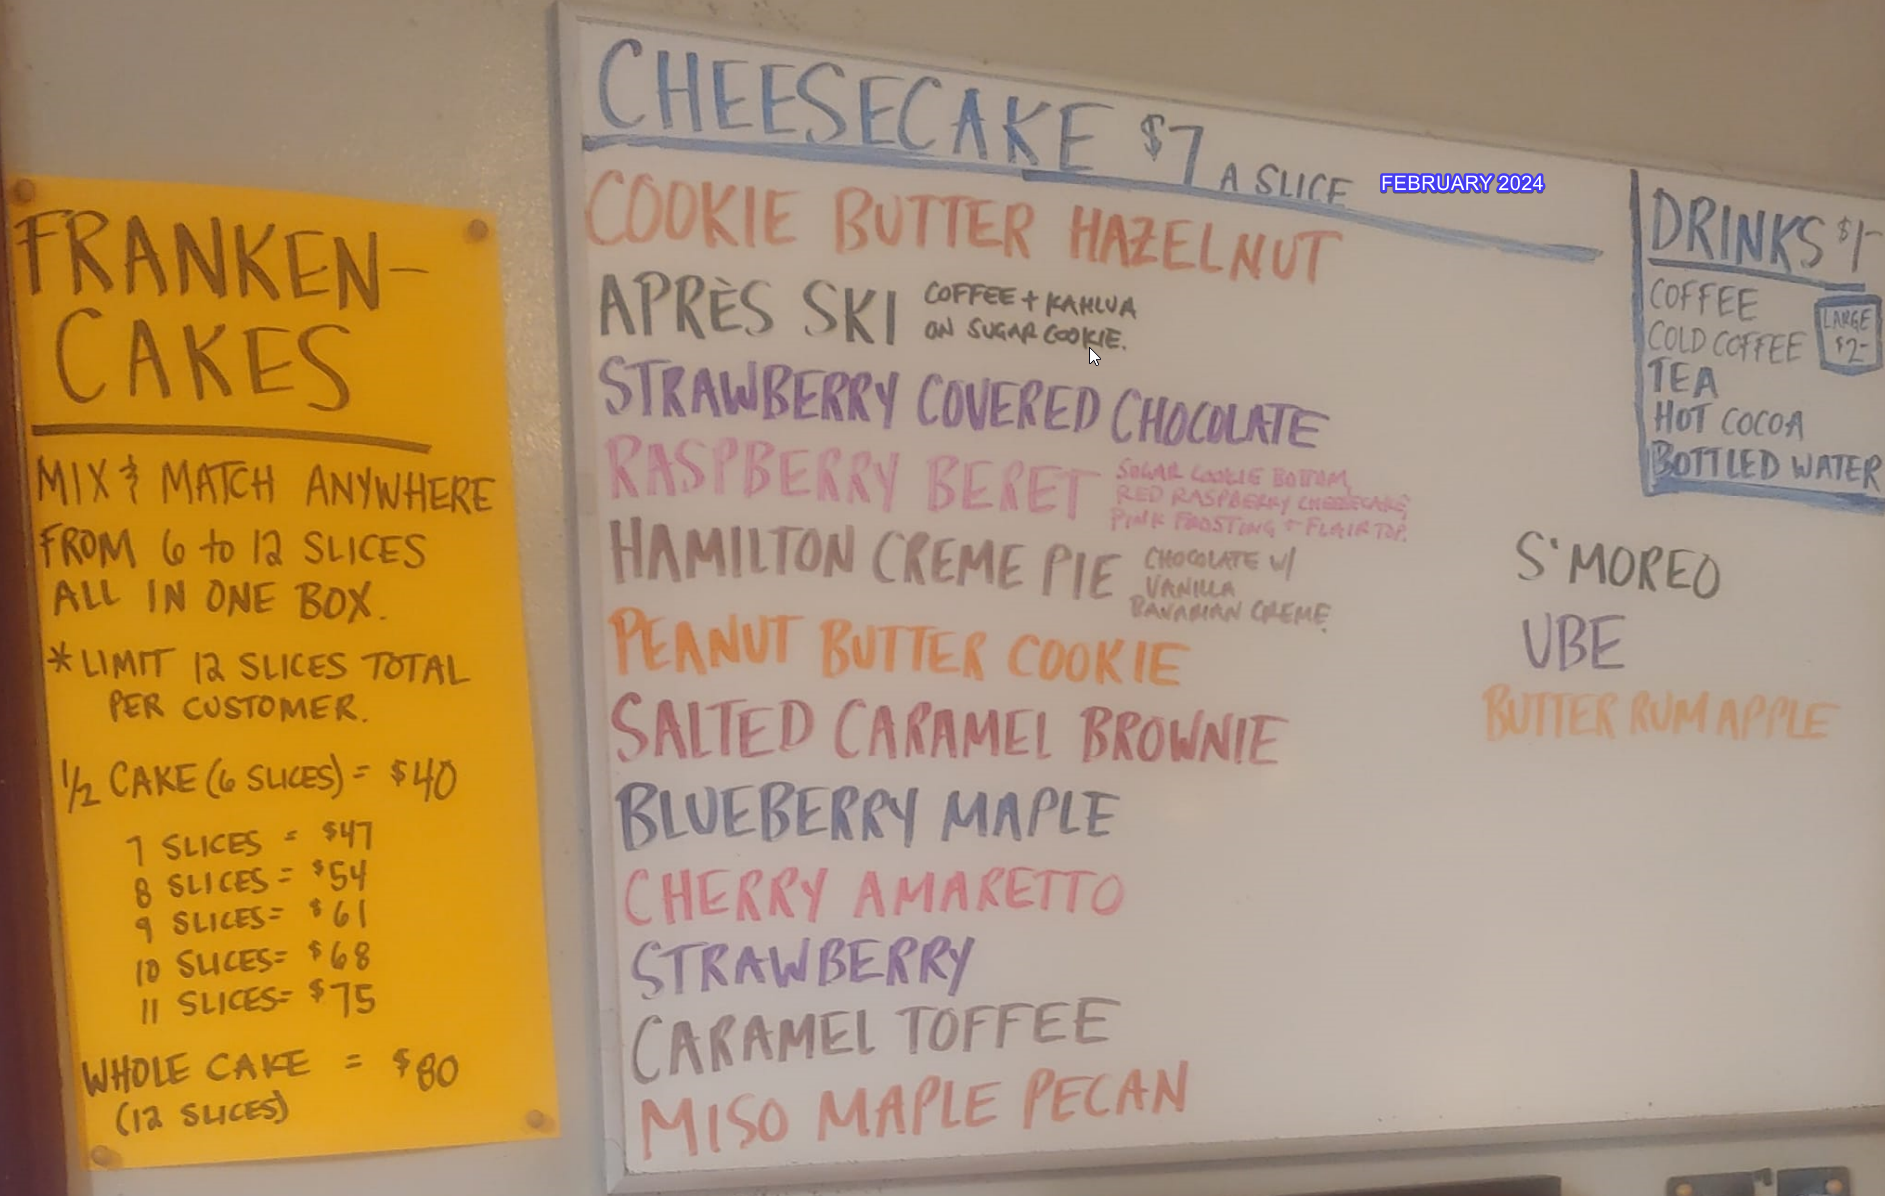 FRANKEN-
CAKES
MIX & MATCH ANYWHERE
FROM 6 to 12 SLICES
ALL IN ONE BOX.
*LIMIT 12 SLICES TOTAL
PER CUSTOMER.
1/2 CAKE (6 SLICES) = $40
7 SLICES = $47
8 SLICES = $54
9 SLICES= $61
10 SLICES= $68
11 SLICES= $75
WHOLE CAKE = $80
(12 SLICES)
CHEESECAKE $7 A SLICE
FEBRUARY 2024
COOKIE BUTTER HAZELNUT
APRÈS SKI COFFEE + KAHLUA
ON SUGAR COOKIE.
STRAWBERRY COVERED CHOCOLATE
RASPBERRY BERET SUGAR COOKIE BOTTOM,
RED RASPBERRY CHEESECAKE,
PINK FROSTING + FLAIR TOP.
HAMILTON CREME PIE CHOCOLATE W/
VANILLA
BAVARIAN CREME.
PEANUT BUTTER COOKIE
SALTED CARAMEL BROWNIE
BLUEBERRY MAPLE
CHERRY AMARETTO
STRAWBERRY
CARAMEL TOFFEE
MISO MAPLE PECAN
DRINKS $1-
COFFEE
COLD COFFEE
LARGE
$2-
TEA
HOT COCOA
BOTTLED WATER
S'MOREO
UBE
BUTTER RUM APPLE